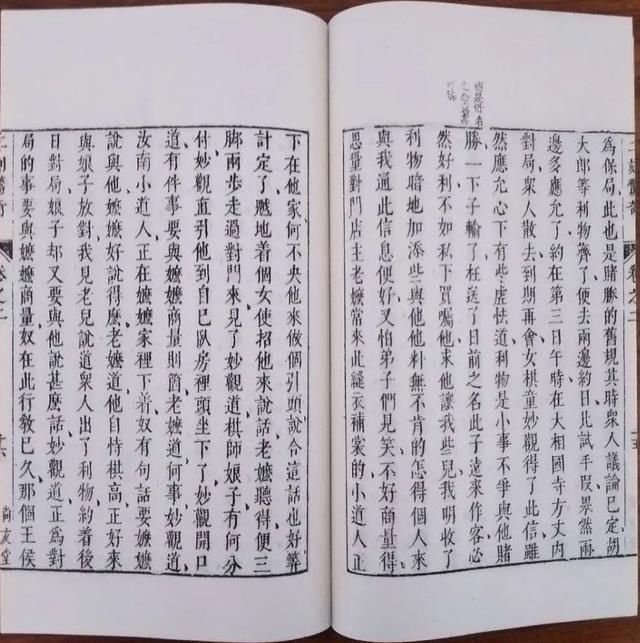 卷之二
為保局此也是賭勝的舊規其時衆人議論已定胡
大郎斂利物齊了便去兩邊約日比試手段果然兩
邊多應允了約在第三日午時在大相國寺方丈内
對局衆人散去到期再會女棋童妙觀得了此信雖
然應允心下有些虛怯道利物是小事不爭與他賭
勝一下子輸了枉送了日前之名此子遠來作客必
然好利不如私下買囑他求他讓我些兒我明收了
利物暗地加添些與他他料無不肯的怎得個人來
與我通此信息便好又怕弟子們見笑不好商量得
思量對門店主老嬷常來此縫衣補裳的小道人正
下在他家何不央他來做個引頭說合這話也好算
計定了魆地着個女使招他來說話老嬷聽得便三
脚兩步走過對門來見了妙觀道棋師娘子有何分
付妙觀直引他到自己臥房裡頭坐下了妙觀開口
道有件事要與嬷嬷商量則箇老嬷道何事妙觀道
汝南小道人正在嬷嬷家裡下着奴有句話要嬷嬷
說與他嬷嬷好說得麽老嬷道他自恃棋高正好來
與娘子放對我見老兒說道衆人出了利物約着後
日對局娘子却又要與他說甚麽話妙觀道正為對
局的事要與嬷嬷商量奴在此行教已久那個王侯
卷之二
十六
尚友堂